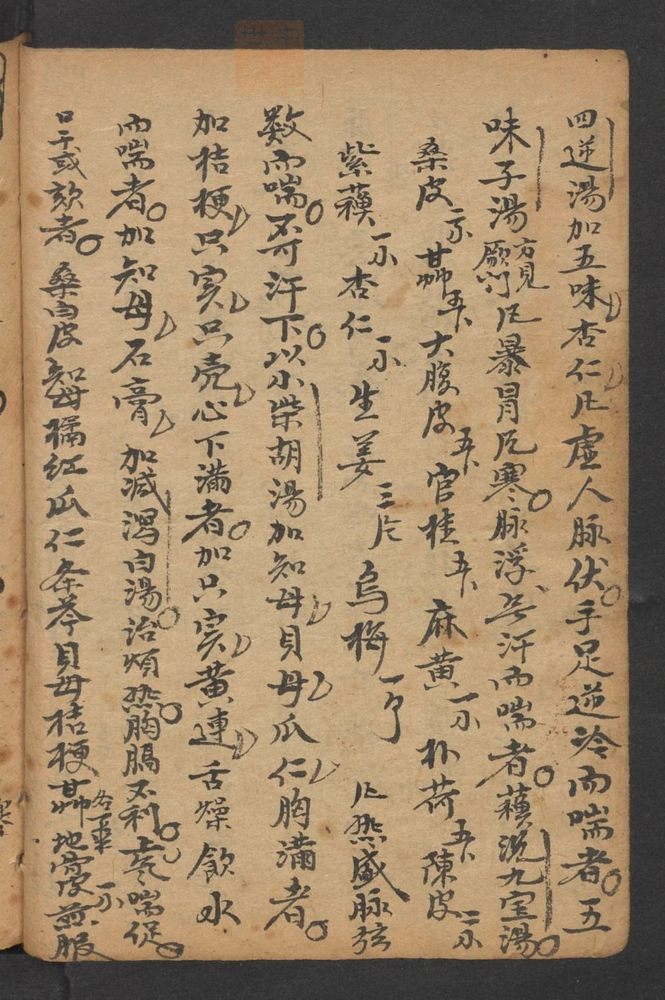 四逆湯加五味杏仁凡虛人脉伏手足逆冷而喘者五
味子湯方見厥門凡暴冒凡寒脉浮無汗而喘者蘓沉九宝湯
桑皮一尒甘艸五卜大腹皮五卜官桂五卜麻黃一尒朴荷五卜陳皮一尒
紫蘓一尒杏仁一尒生姜三片烏梅一个 凡熱盛脉弦
数而喘不可汗下以小柴胡湯加知母貝母瓜仁胸滿者
加桔梗只实只壳心下滿者加只实黃連舌燥飲水
而喘者加知母石膏 加减瀉白湯治煩熱胸膈不利上氣喘促
口干或欬者 桑白皮知母橘紅瓜仁条芩貝母桔梗甘艸地骨皮煎服